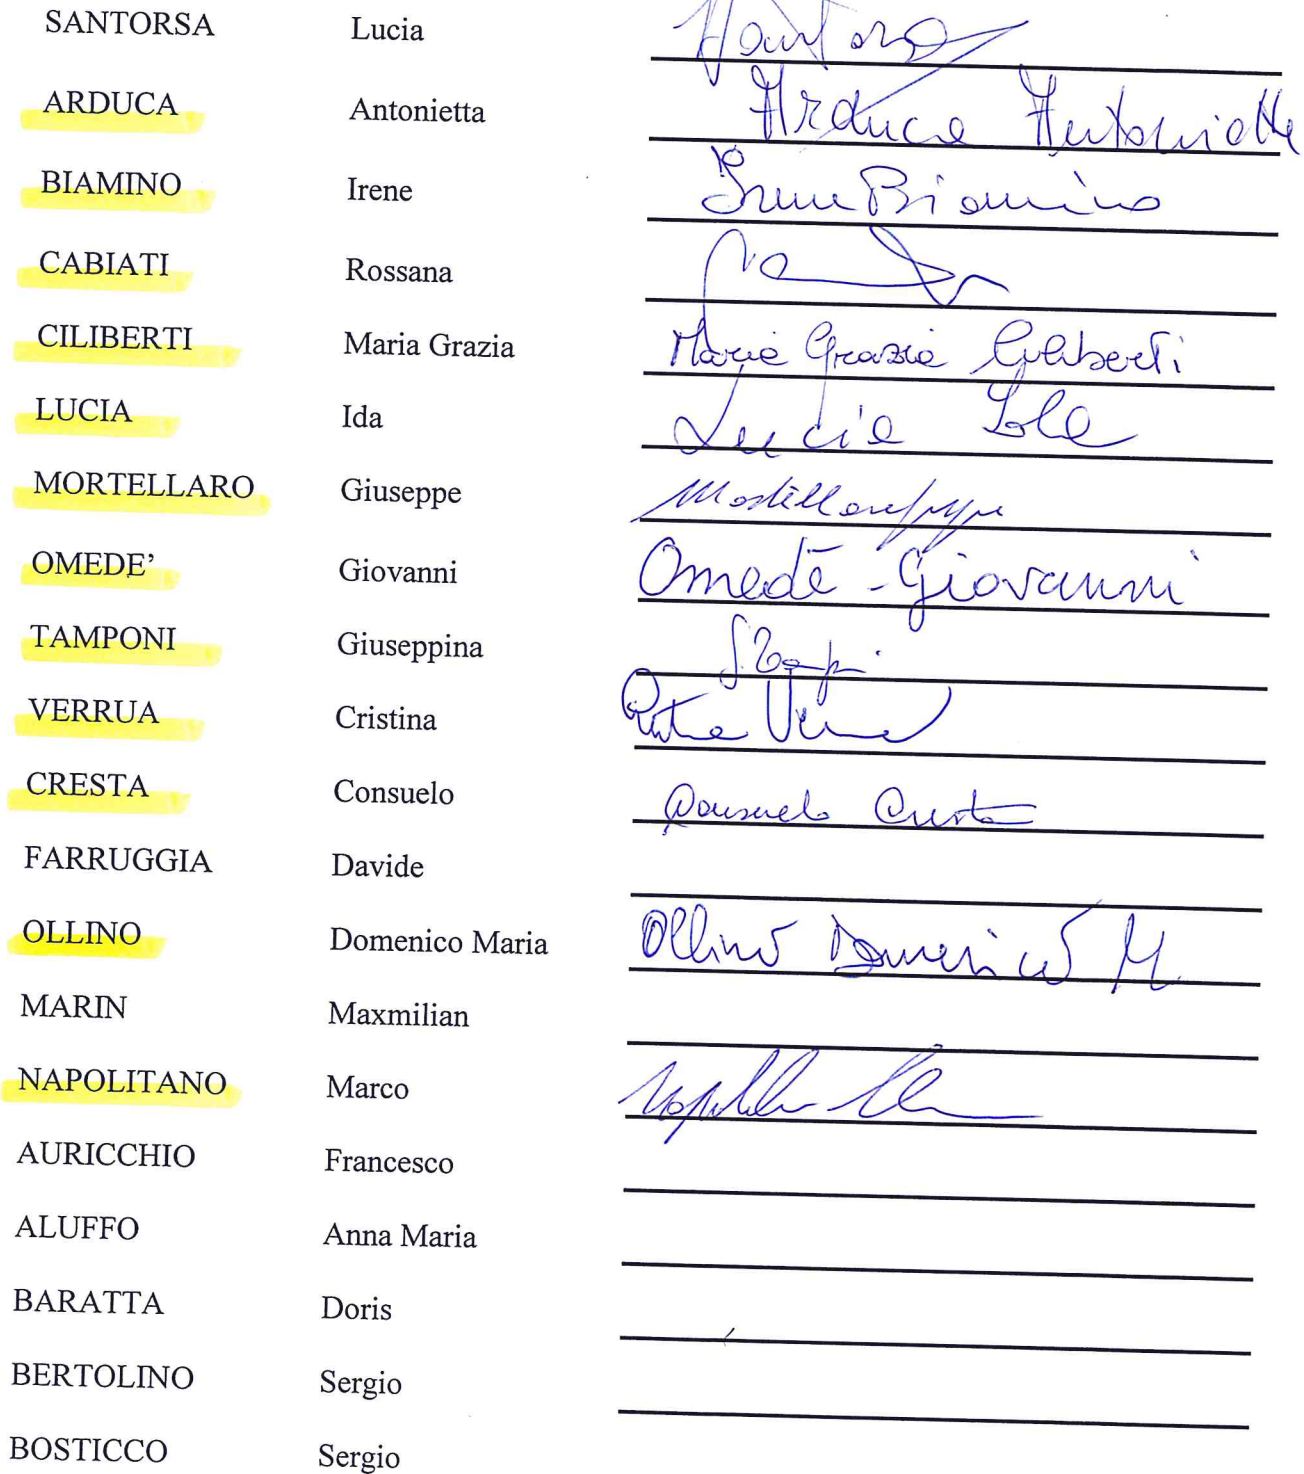 SANTORSA Lucia Santorsa
ARDUCA Antonietta Arduca Antonietta
BIAMINO Irene Irene Biamino
CABIATI Rossana
CILIBERTI Maria Grazia Maria Grazia Ciliberti
LUCIA Ida Lucia Ida
MORTELLARO Giuseppe
OMEDE’ Giovanni Omedè - Giovanni
TAMPONI Giuseppina
VERRUA Cristina
CRESTA Consuelo Consuelo Cresta
FARRUGGIA Davide
OLLINO Domenico Maria Ollino Domenico M
MARIN Maxmilian
NAPOLITANO Marco
AURICCHIO Francesco
ALUFFO Anna Maria
BARATTA Doris
BERTOLINO Sergio
BOSTICCO Sergio